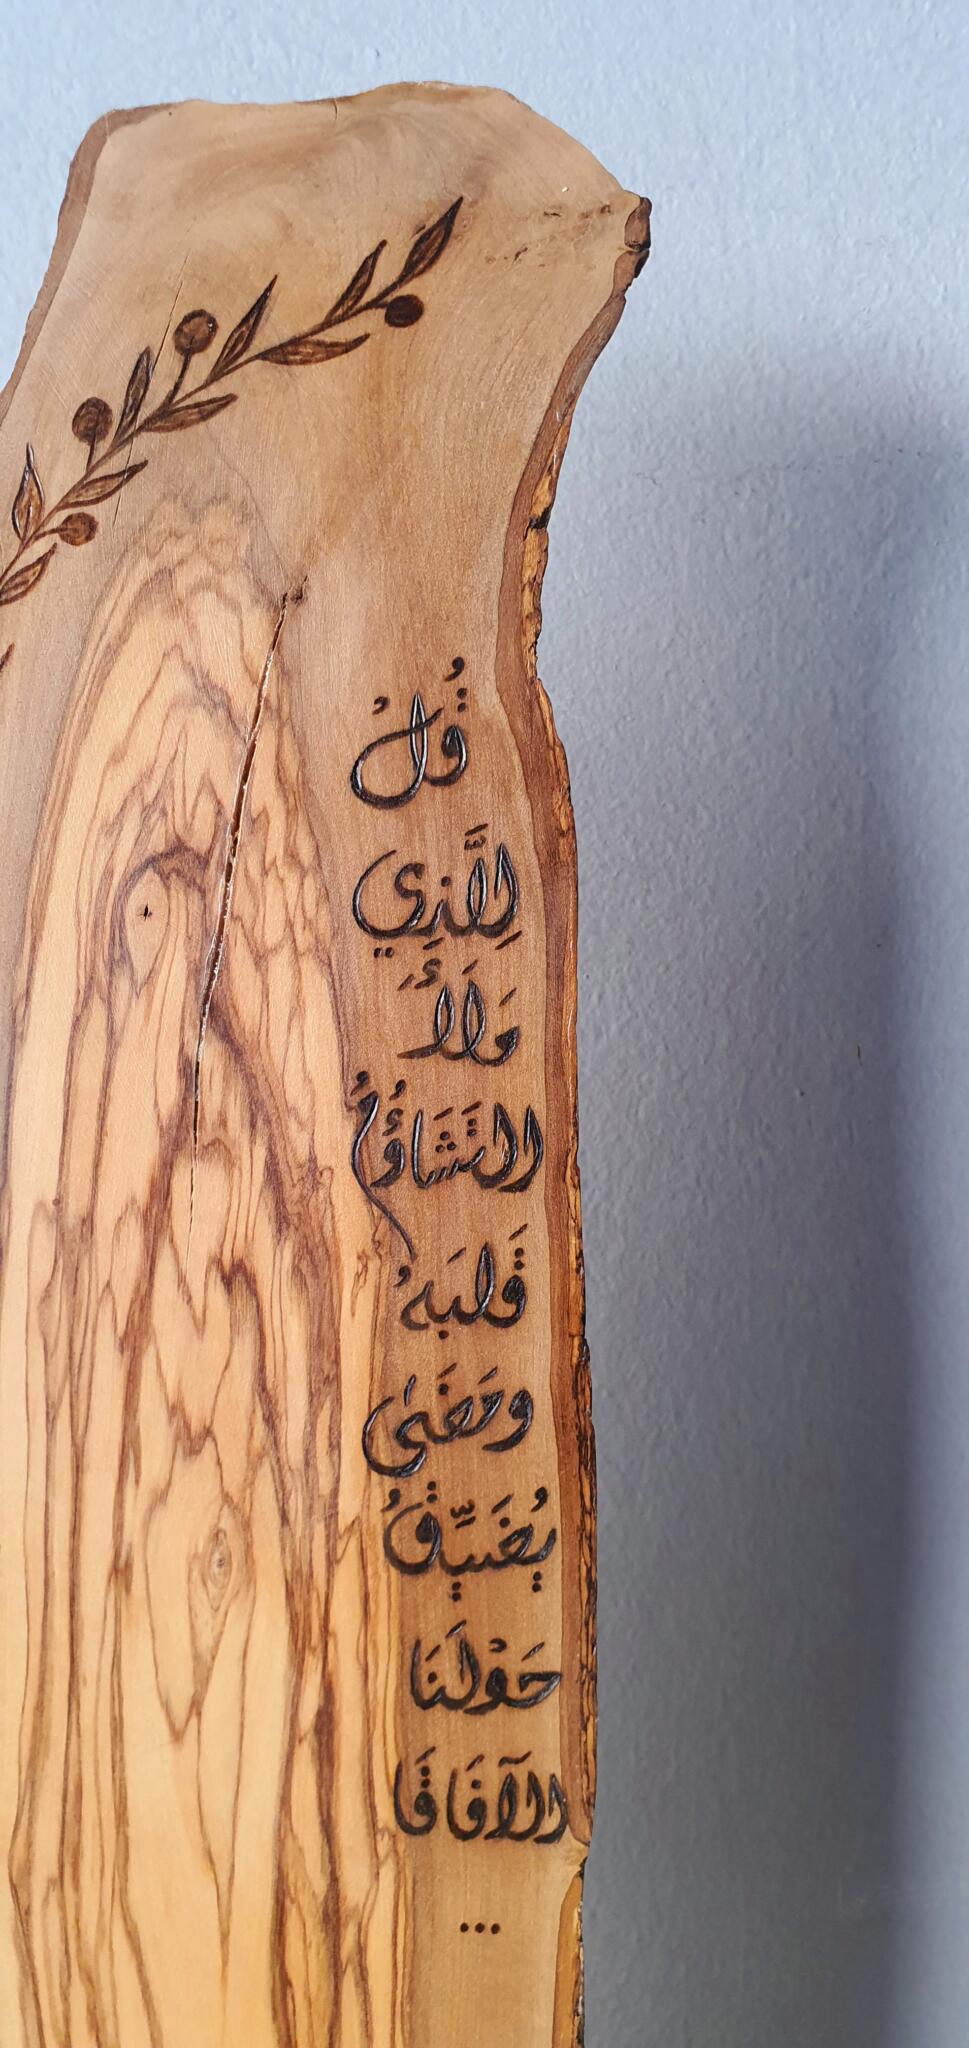 قُلْ
لِلَّذِي
مَلَأَ
التَشَاؤُمُ
قَلبَهُ
ومَضَى
يُضَيِّقُ
حَوْلَنَا
الآفَاقَا
...